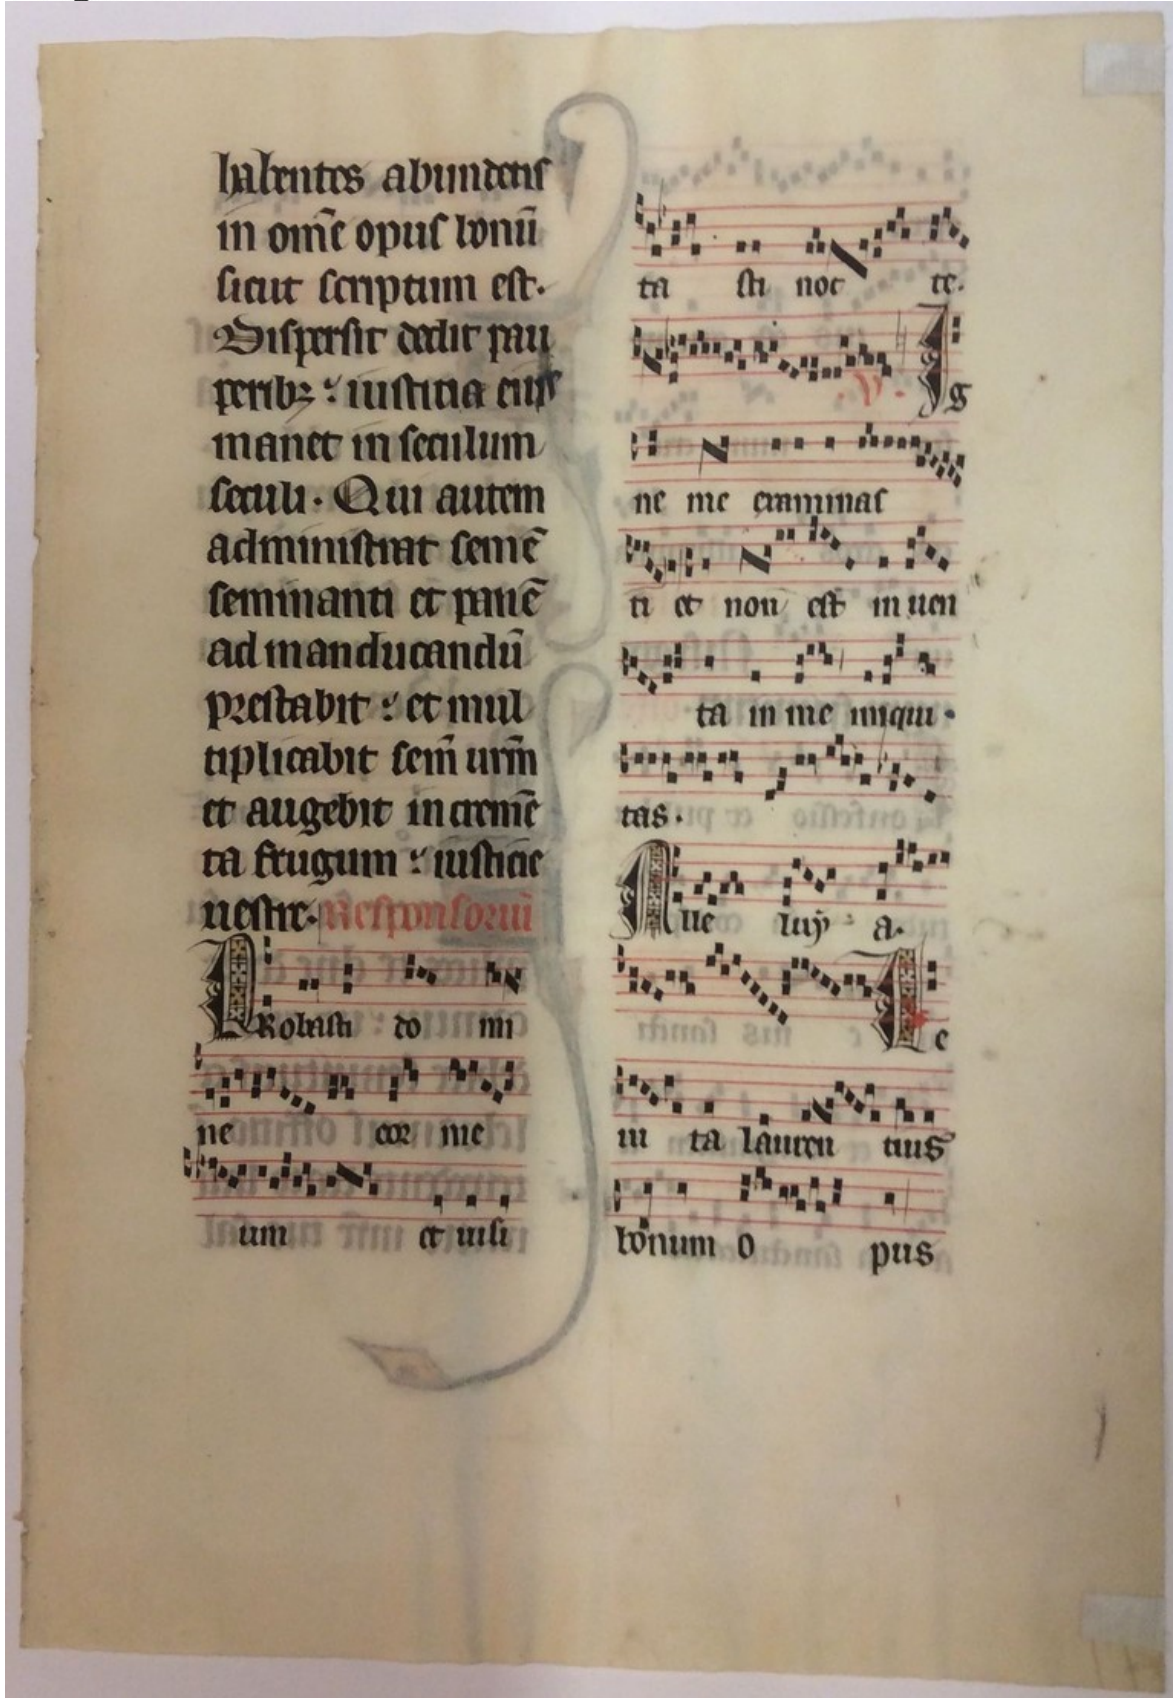 habentes abundetis
in om̄e opus bonū
sicut scriptum est.
Dispersit dedit pau
peribꝫ: iusticia eius
manet in seculum
seculi. Qui autem
administrat semē
seminanti et panē
ad manducandū
prestabit: et mul
tiplicabit sem̄ urm̄
et augebit incremē
ta frugum: iusticie
uestre. Responsoriū
PRobasti do mi
ne cor me
um et uisi
ta sti noc te.
V. Ig
ne me examinas
ti et non est inuen
ta in me iniqui
tas.
Alle luya a.
Le
ui ta lauren tius
bonum o pus